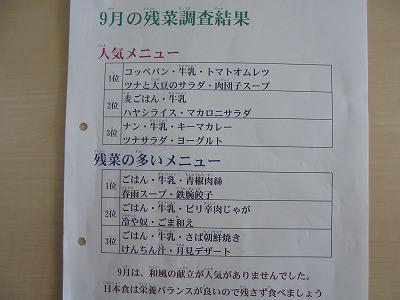 9月の残菜調査結果
人気メニュー
1位
コッペパン・牛乳・トマトオムレツ
ツナと大豆のサラダ・肉団子スープ
2位
麦ごはん・牛乳
ハヤシライス・マカロニサラダ
3位
ナン・牛乳・キーマカレー
ツナサラダ・ヨーグルト
残菜の多いメニュー
1位
ごはん・牛乳・青椒肉絲
春雨スープ・鉄腕餃子
2位
ごはん・牛乳・ピリ辛肉じゃが
冷や奴・ごま和え
3位
ごはん・牛乳・さば朝鮮焼き
けんちん汁・月見デザート
9月は、和風の献立が人気がありませんでした。
日本食は栄養バランスが良いので残さず食べましょう